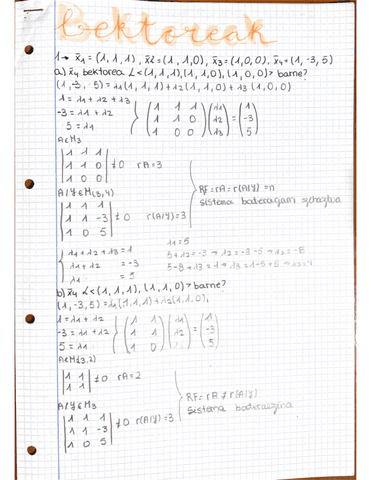 Bektoreak
1→ x̄1=(1,1,1), x̄2=(1,1,0), x̄3=(1,0,0), x̄4=(1,-3,5)
a) x̄4 bektorea L<(1,1,1),(1,1,0),(1,0,0)> barne?
(1,-3,5)=λ1(1,1,1)+λ2(1,1,0)+λ3(1,0,0)
1=λ1+λ2+λ3
-3=λ1+λ2
5=λ1
(1 1 1) (λ1) (1)
(1 1 0) (λ2) = (-3)
(1 0 0) (λ3) (5)
A∈M3
|1 1 1|
|1 1 0| ≠0 rA=3
|1 0 0|
A/Y∈M(3,4)
|1 1 1|
|1 1 -3| ≠0 r(A/Y)=3
|1 0 5|
RF=rA=r(A/Y)=n
sistema bateragarri
λ1+λ2+λ3=1
λ1+λ2 =-3
λ1 =5
λ1=5
5+λ2=-3→λ2=-3-5→λ2=-8
5-8+λ3=1→λ3=1-5+8→λ3=4
b) x̄4 L<(1,1,1),(1,1,0)> barne?
(1,-3,5)=λ1(1,1,1)+λ2(1,1,0)
1=λ1+λ2
-3=λ1+λ2
5=λ1
(1 1) (λ1) (1)
(1 1) (λ2) = (-3)
(1 0) (5)
A∈M(3,2)
|1 1|
|1 1| ≠0 rA=2
A/Y∈M3
|1 1 1|
|1 1 -3| ≠0 r(A/Y)=3
|1 0 5|
RF=rA≠r(A/Y)
sistema bateraezina